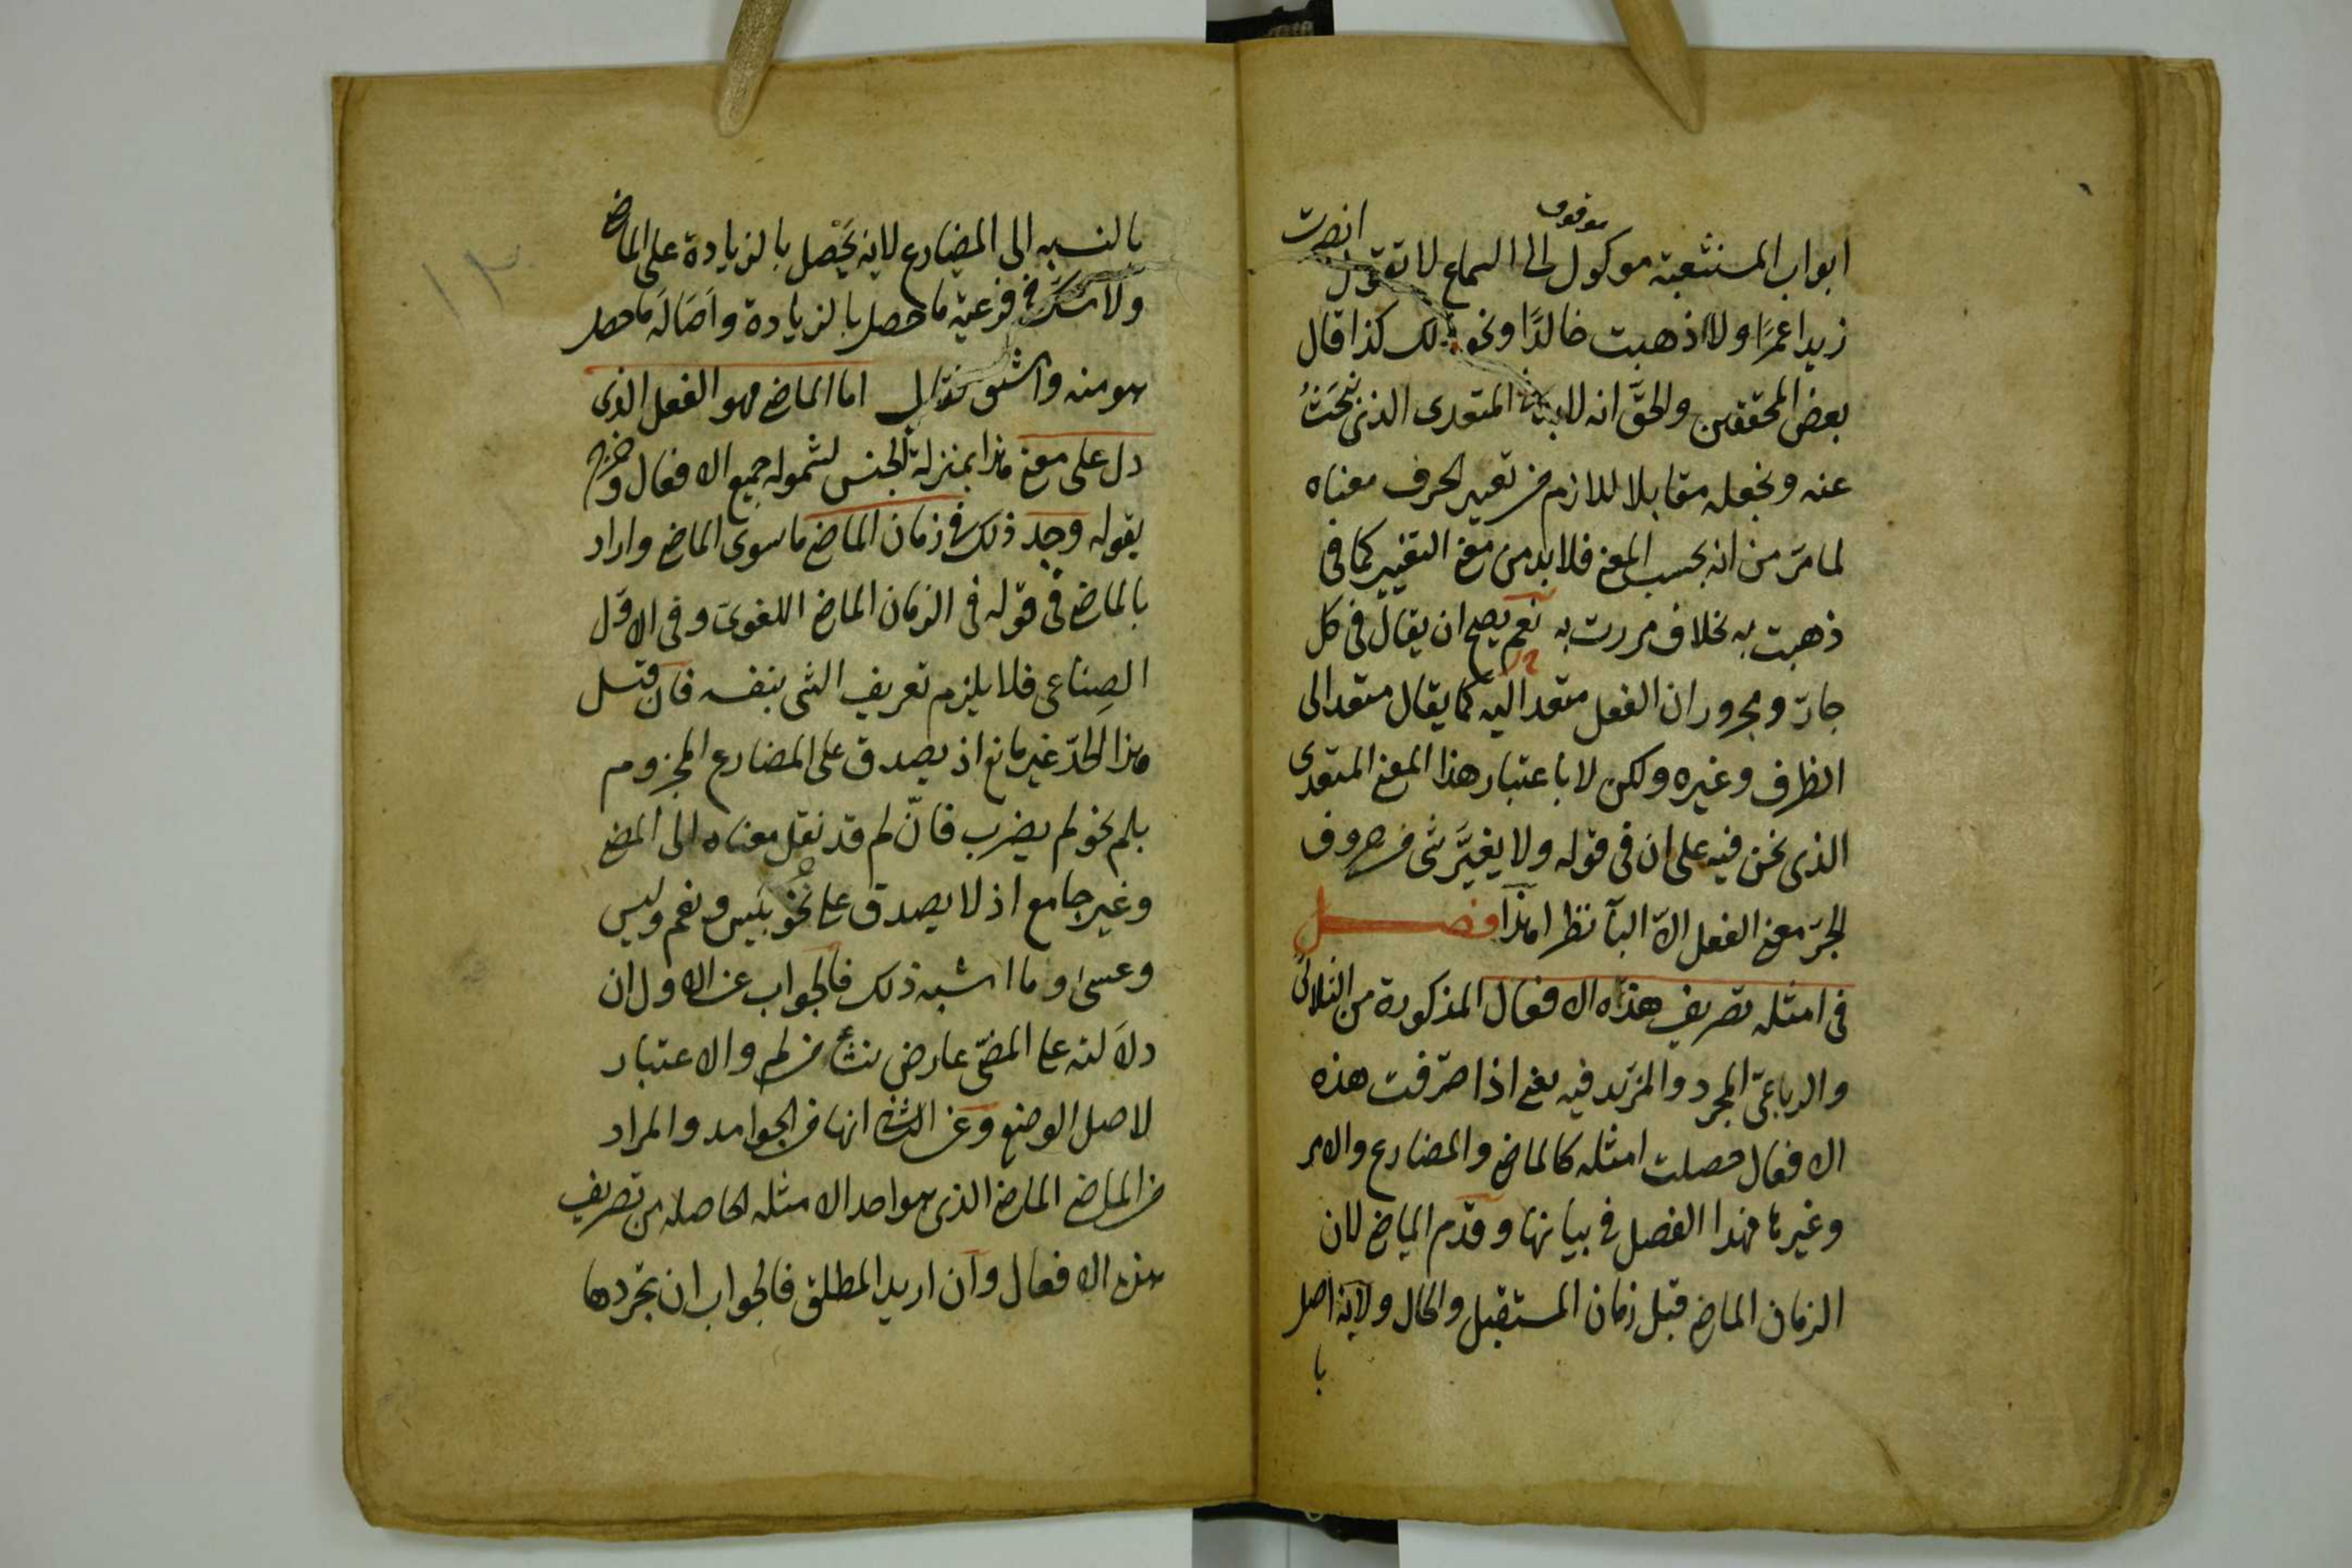 موقوف
ابواب المنشعبة موكول الى السماع لا تقول انصرت
زيدا عمرًا ولا اذهبت خالدًا ونحو ذلك كذا قال
بعض المحققين والحقّ انه لابد في المتعدى الذى نبحث
عنه ونجعله مقابلا للازم من تغيير الحرف معناه
لما مرّ من انه بحسب المعنى فلا بد من معنى التغيير كما فى
ذهبت به بخلاف مررت به نعم يصح ان يقال فى كل
جارّ ومجرور ان الفعل متعد اليه كما يقال متعد الى
الظرف وغيره ولكن لا باعتبار هذا المعنى المتعدى
الذى نحن فيه على ان فى قوله ولا يغيّر شى من حروف
الجرّ معنى الفعل الّا البآ نظرا هذا فصل
فى امثله تصريف هذه الافعال المذكورة من الثلاثى
والرباعىّ المجرد والمزيد فيه يعنى اذا صرّفت هذه
الافعال حصلت امثله كالماضى والمضارع والامر
وغيرها فهذا الفصل فى بيانها وقدّم الماضى لان
الزمان الماضى قبل زمان المستقبل والحال ولانه اصل
با
١٢
بالنسبه الى المضارع لانه يَحْصل بالزيادة على الماضى
ولا شك فى فرعية ما حصل بالزيادة واَصَالَة ما حصل
هو منه واشتق فقال اما الماضى فهو الفعل الذى
دل على معنى هذا بمنزلة الجنس لشموله جميع الافعال وخرج
بقوله وجد ذلك فى زمان الماضى ما سوى الماضى واراد
بالماضى فى قوله فى الزمان الماضى اللغوىّ وفى الاوّل
الصِناعى فلا يلزم تعريف الشى بنفسه فان قيل
هذا الحدّ غير مانع اذ يصدق على المضارع المجزوم
بلم نحو لم يضرب فانّ لم قد نقل معناه الى المضى
وغير جامع اذ لا يصدق على نحو بئس ونعم وليس
وعسىٰ وما اشبه ذلك فالجواب عن الاول ان
دلاَلته على المضىّ عارض نشأ من لم والاعتبار
لاصل الوضع وعن الثانى انها من الجوامد والمراد
من الماضى الماضى الذى هو احد الامثله الحاصله من تصريف
هذه الافعال وآن اريد المطلق فالجواب ان تجردها